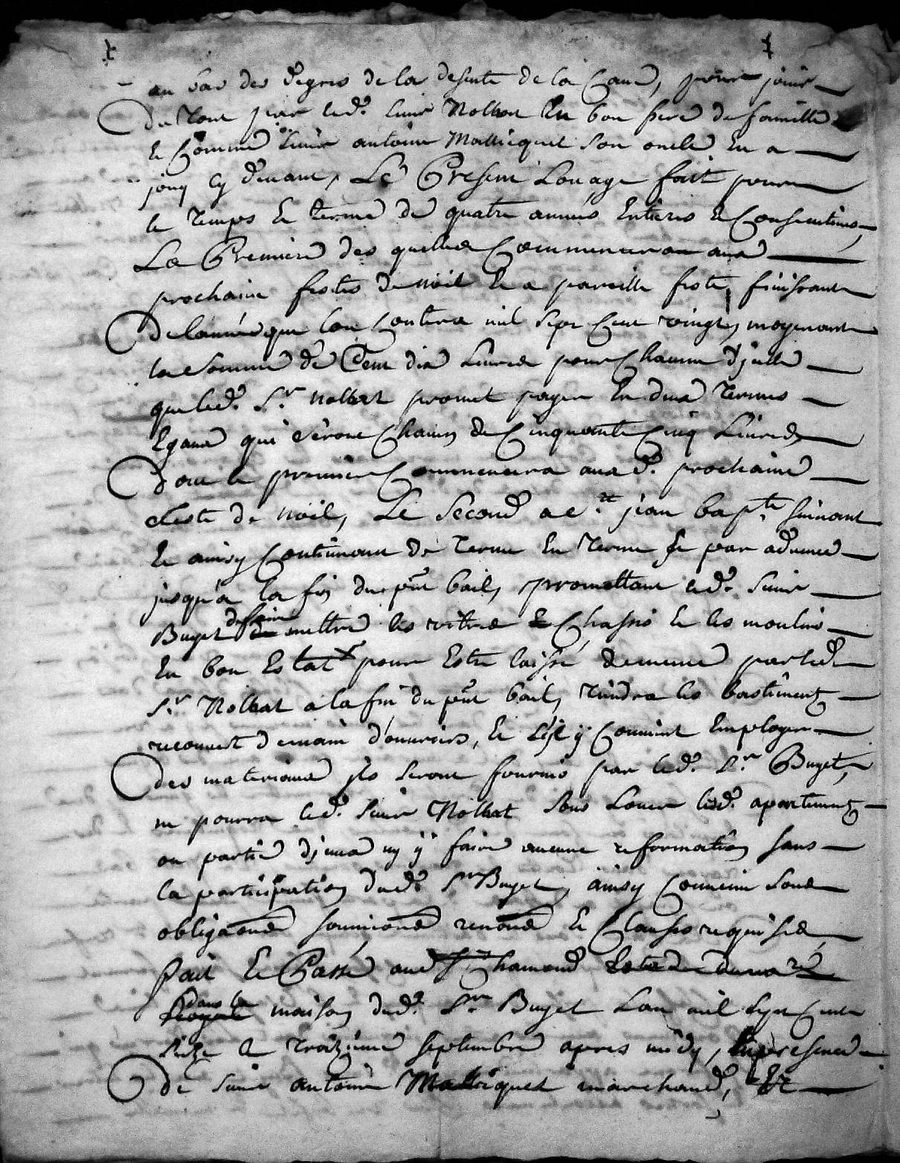 au bas des degres de la desente de la Cave, pour jouir
du tout par led. sieur Nolhat En bon pere de famille
Et Comme sieur antoine Mallicquet son oncle En a
jouy Cy devant, Le Present Louage fait pour
le temps Et terme de quatre années Entieres Et Consecutives,
La Premiere des quelles Commencera aux
prochaine festes de noël Et a pareille feste, finissant
de lannée que lon Contera mil sept Cent vingt, moyenant
la somme de Cent dix Livres pour Chacune d'jcelle
que led. Sr. Nolhat promet payer En deux termes
Egaux qui seront Chacun de Cinquante Cinq Livres
dont le premier Commencera aux d. prochaine
feste de noël, Le Second a st. jean bapte. suivant
Et ainsy Continuant de terme En terme Et par advance
jusqu'a la fin du pnt bail, promettant led. sieur
Buyet de faire mettre les vitres Et Chassis Et les moulin
En bon Estat pour Estre laissé de mesme par led.
Sr. Nolhat a la fin du pnt bail, tiendra les bastiments
recouvert de main d'ouvriers, Et s'il y Convient Employer
des materiaux jls seront fournis par led. Sr. Buyet,
ne pourra led. sieur Nolhat sous Louer lesd. apartements
ou partie djceux ny y faire aucune reformation sans
la participation dud. Sr. Buyet, ainsy Convenu sous
obligaons soumissions renons Et Clauses requises
fait Et Passé aud. St Chamond
dans la maison dud. Sr. Buyet Lan mil sept Cent
seize Et treizieme septembre apres midy, En presence
de sieur antoine Mallicquet marchand, Et